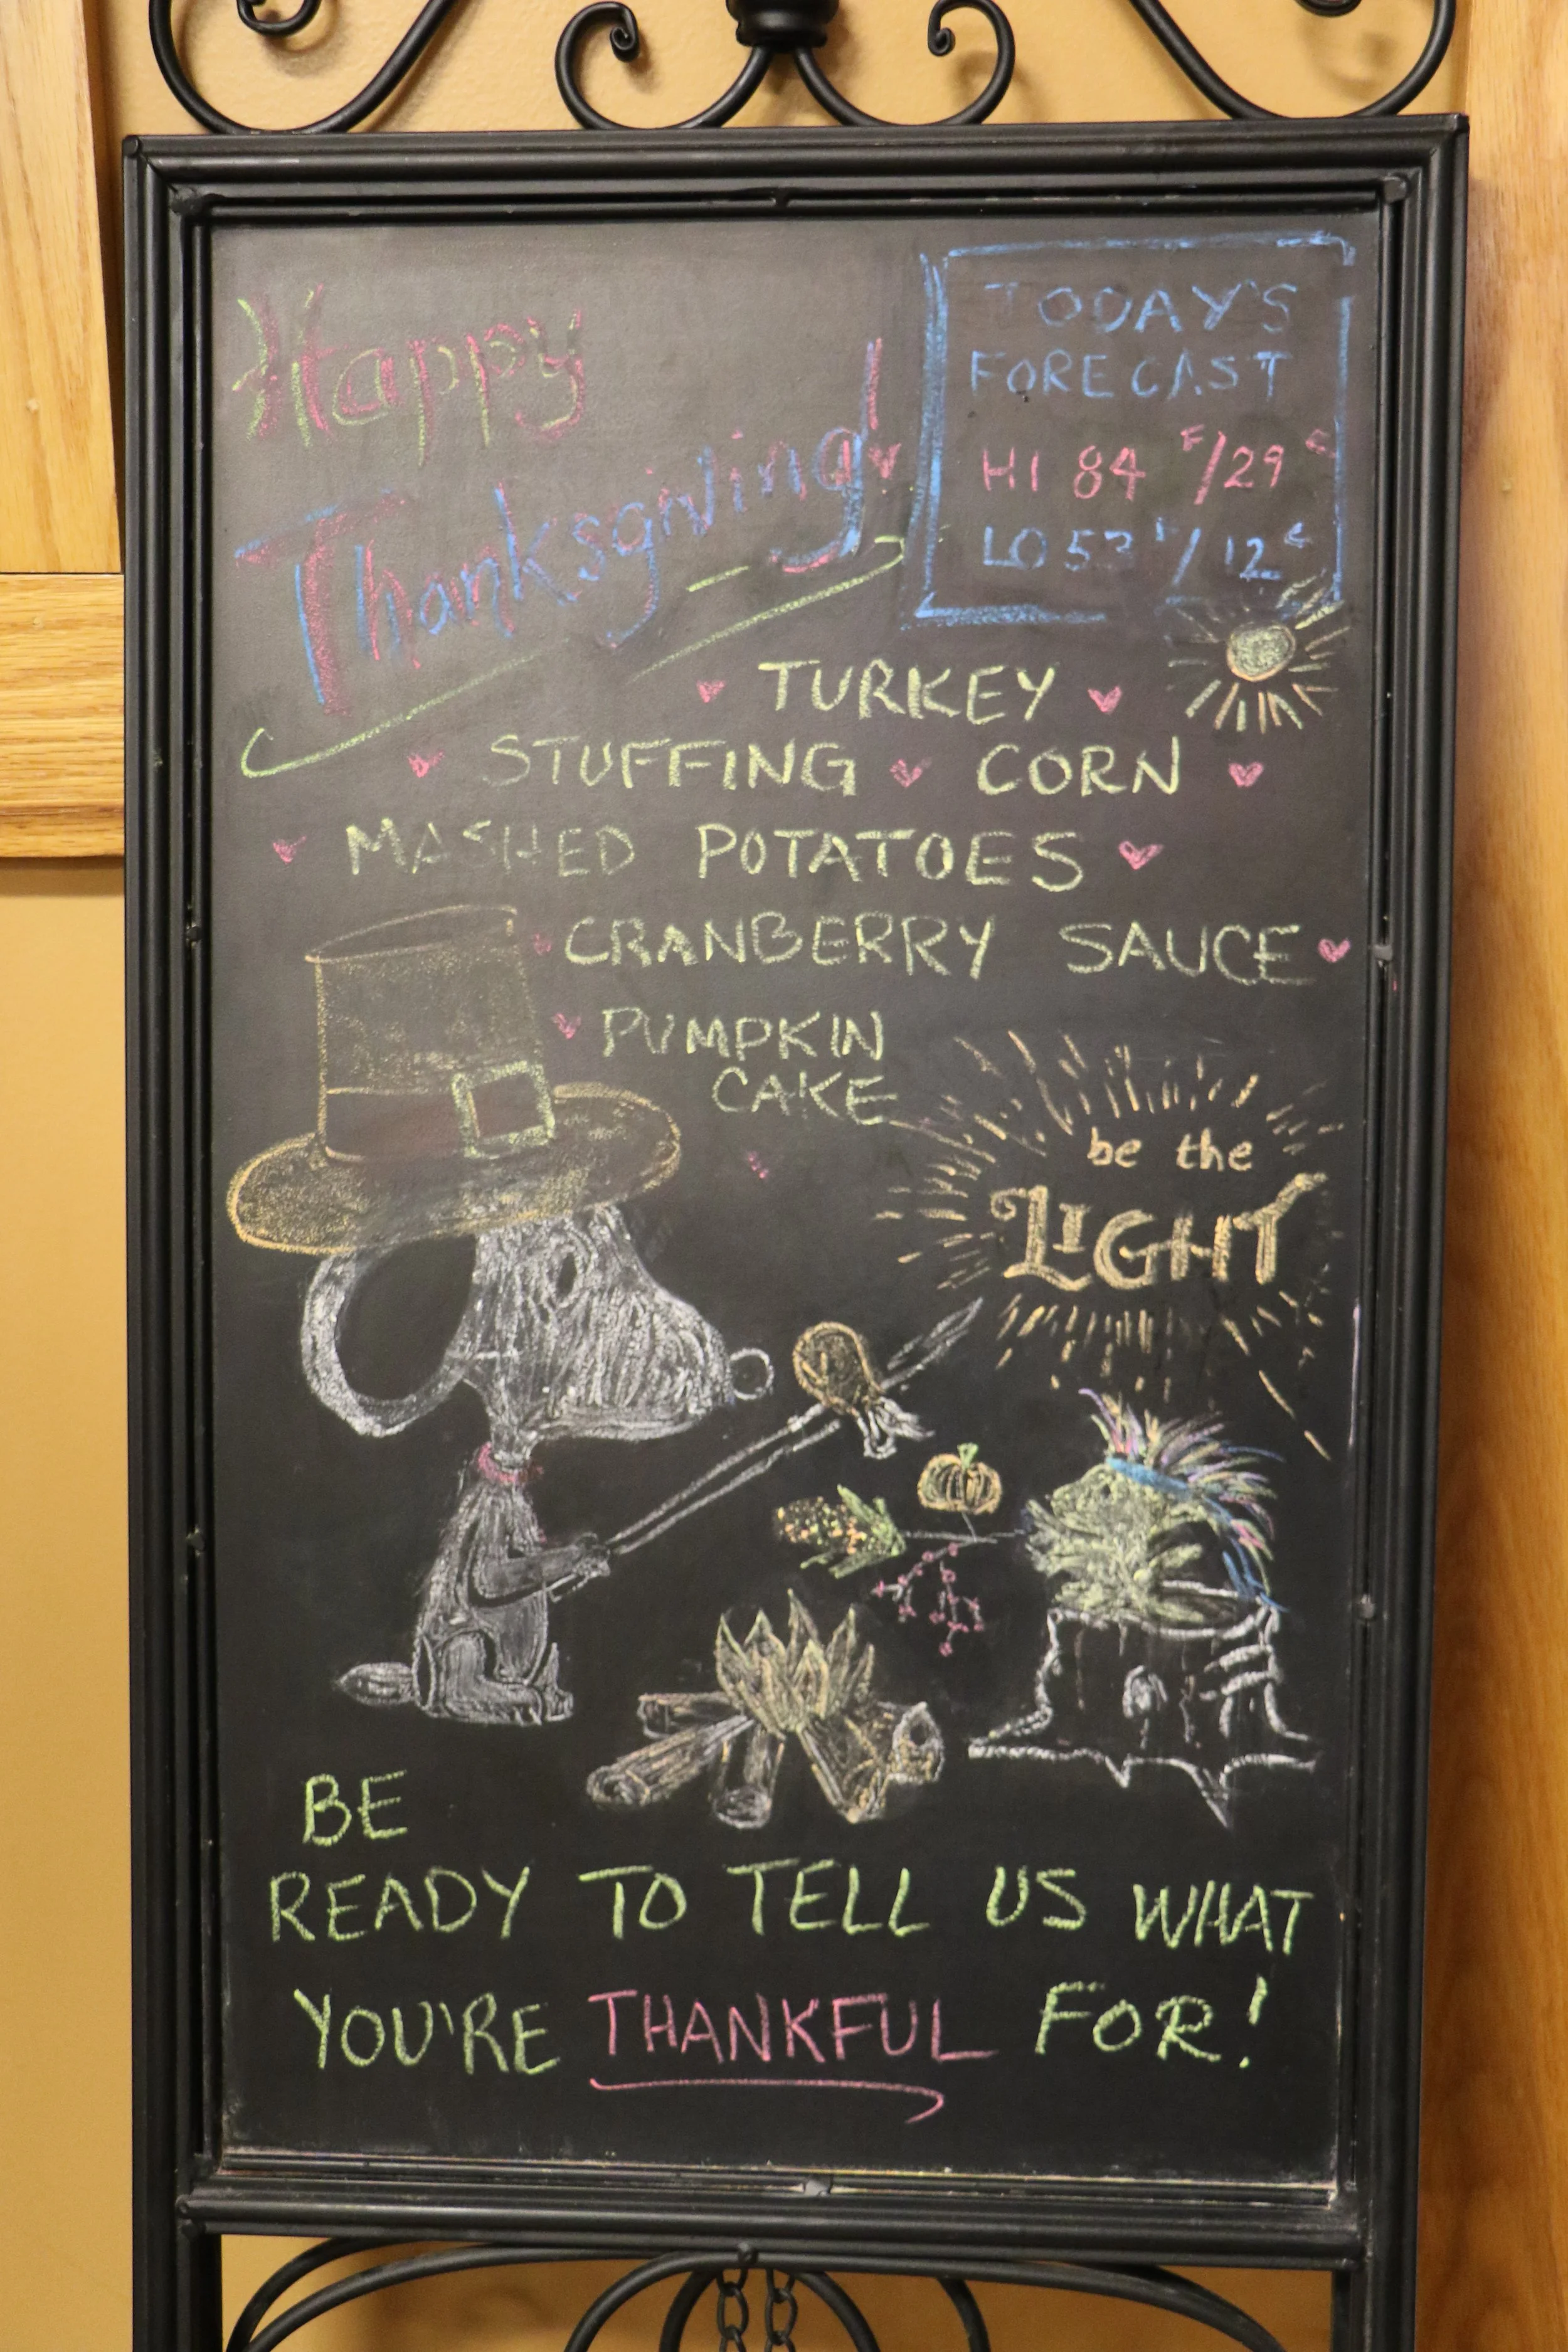 Happy
Thanksgiving!
TODAY'S
FORECAST
HI 84 F/29 C
LO 53 F/12 C
TURKEY
STUFFING CORN
MASHED POTATOES
CRANBERRY SAUCE
PUMPKIN
CAKE
be the
LIGHT
BE
READY TO TELL US WHAT
YOU'RE THANKFUL FOR!